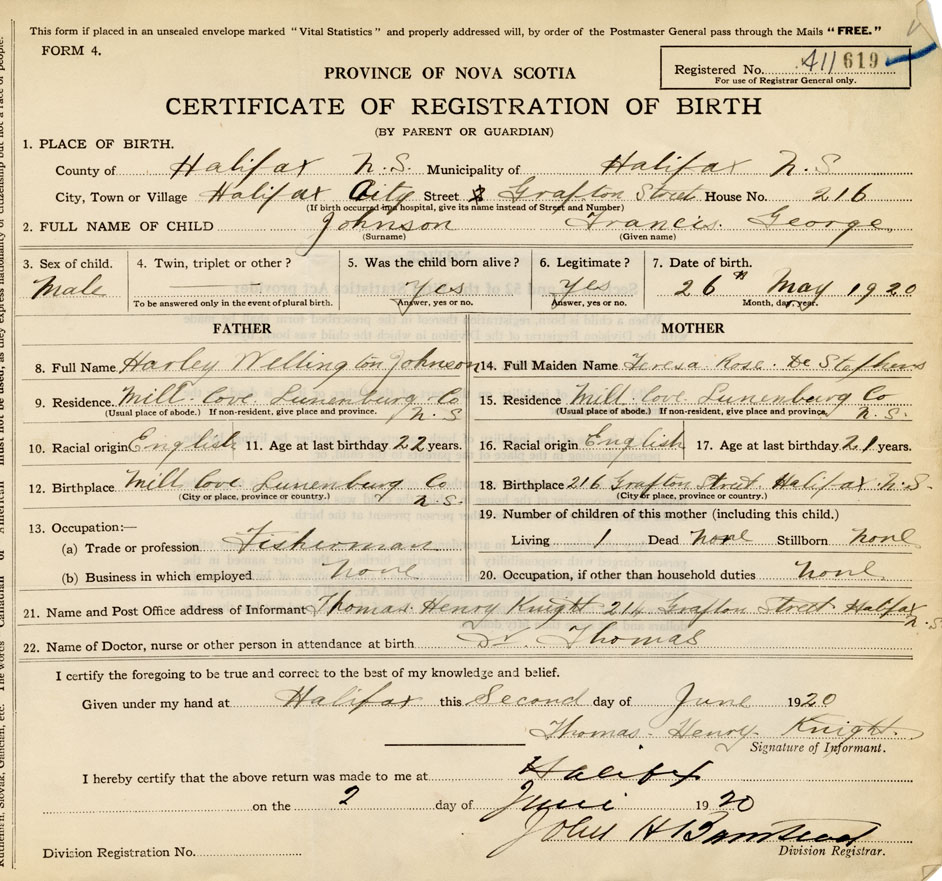 This form if placed in an unsealed envelope marked "Vital Statistics" and properly addressed will, by order of the Postmaster General pass through the Mails "FREE."
FORM 4.
Registered No. 411619
For use of Registrar General only.
PROVINCE OF NOVA SCOTIA
CERTIFICATE OF REGISTRATION OF BIRTH
(BY PARENT OR GUARDIAN)
1. PLACE OF BIRTH.
County of Halifax N.S. Municipality of Halifax N.S.
City, Town or Village Halifax City Street Grafton Street House No. 216
(If birth occurred in a hospital, give its name instead of Street and Number)
2. FULL NAME OF CHILD Johnson Francis George
(Surname) (Given name)
3. Sex of child. 4. Twin, triplet or other? 5. Was the child born alive? 6. Legitimate? 7. Date of birth.
Male Yes Yes 26th May 1920
To be answered only in the event of plural birth. Answer, yes or no. Answer, yes or no. Month, day, year.
FATHER MOTHER
8. Full Name Harley Wellington Johnson 14. Full Maiden Name Teresa Rose De Stephens
9. Residence Mill Cove Lunenburg Co N.S 15. Residence Mill Cove Lunenburg Co N.S.
(Usual place of abode.) If non-resident, give place and province. (Usual place of abode.) If non-resident, give place and province.
10. Racial origin English 11. Age at last birthday 22 years. 16. Racial origin English 17. Age at last birthday 21 years.
12. Birthplace Mill Cove Lunenburg Co N.S. 18. Birthplace 216 Grafton Street Halifax N.S.
(City or place, province or country.) (City or place, province or country.)
13. Occupation:— 19. Number of children of this mother (including this child.)
(a) Trade or profession Fisherman Living 1 Dead None Stillborn None
(b) Business in which employed None 20. Occupation, if other than household duties None
21. Name and Post Office address of Informant Thomas Henry Knight 216 Grafton Street Halifax N.S.
22. Name of Doctor, nurse or other person in attendance at birth Dr. Thomas
I certify the foregoing to be true and correct to the best of my knowledge and belief.
Given under my hand at Halifax this Second day of June 1920
Thomas Henry Knight
Signature of Informant.
I hereby certify that the above return was made to me at Halifax
on the 2 day of June 1920
John H
Division Registration No. Division Registrar.